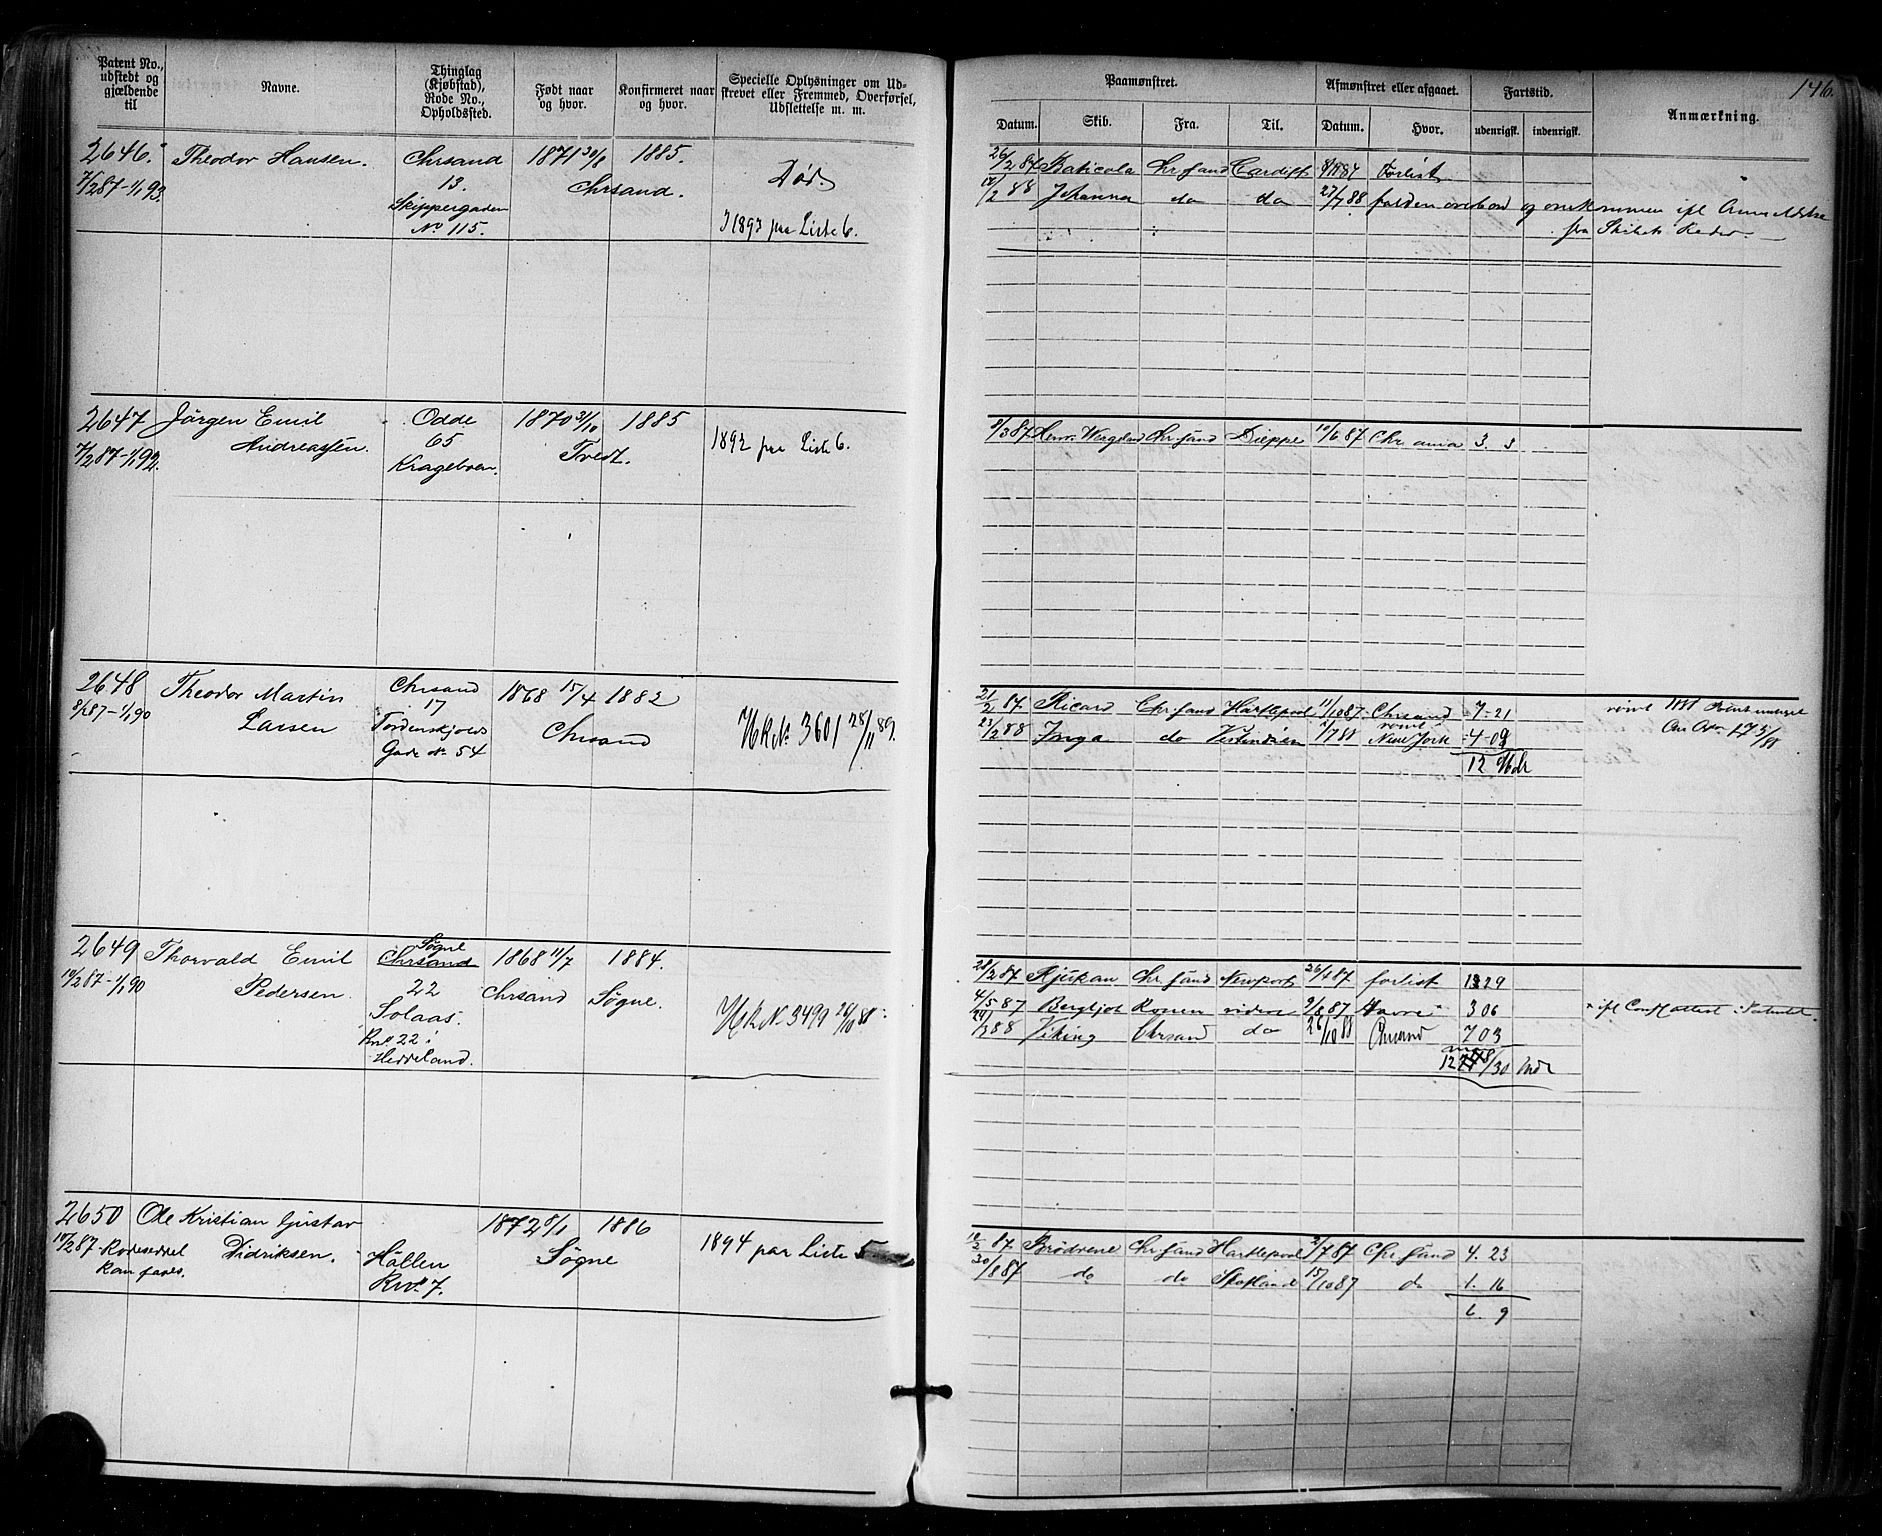 146.
Patent No., udstedt og gjældende til
Navne.
Thinglag (Kjøbstad), Rode No., Opholdssted.
Født naar og hvor.
Konfirmeret naar og hvor.
Specielle Oplysninger om Udskrevet eller Fremmed, Overførsel, Udslettelse m. m.
Paamønstret.
Afmønstret eller afgaaet.
Fartstid.
Anmærkning.
Datum. Skib. Fra. Til. Datum. Hvor. udenrigsk. indenrigsk.
2646. Theodor Hansen. Chrsand 1871 1885.
7/2 87 - 1/1 93. 13. Chrsand. Død.
Skippergaden
No 115. 1893 paa Liste 6.
26/2 87 Baticola Chrsand Cardiff Forlist
2 88 Johanna do do 27/7 88 falden overbord og omkommen ifl
fra Skibets Reder.
2647 Jörgen Emil Odde 1870 31/10 1885
7/2 87 - 1/1 92. Andreassen. 65 Tvedt. 1892 paa Liste 6.
Krageboen.
9/3 87 Henr. Wergeland Chrsand Dieppe 10/6 87 Chr ania 3. 3
2648 Theodor Martin Chrsand 1868 15/4 1882
8/2 87 - 1/1 90 Lassen 17 Chrsand HRNo. 3601 28/11 89.
Tordenskjolds
Gade No. 54
21/2 87 Ricard Chrsand Hartlepool 11/10 87 Chrsand 7-21
23/2 88 Inga do Vestindien 1/7 88 rømt New York 4-09
12 Mdr
2649 Thorvald Emil Søgne Chrsand 1868 11/7 1884.
10/2 87 - 1/1 90 Pedersen. 22 Chrsand Søgne. HRNo. 3499 26/10 88
Solaas.
Rno. 22 i
Heddeland.
28/2 87 Rjukan Chrsand Newport 26/4 87 forlist 1 29
4/5 87 Bergljot Rouen videre 9/8 87 Havre 3 06
3 88 Viking Chrsand do 26/10 88 Chrsand 7 03
12 8/30 Mdr
2650 Ole Kristian Gustav 1872 8/1 1886
10/2 87 - Rodeseddel Didriksen. Höllen Søgne 1894 paa Liste 5
kan fares. Rno. 7.
10/2 87 Brödrene Chrsand Hartlepool 2/7 87 Chrsand 4. 23
30/8 87 do do Skotland 15/10 87 do 1. 16
6. 9